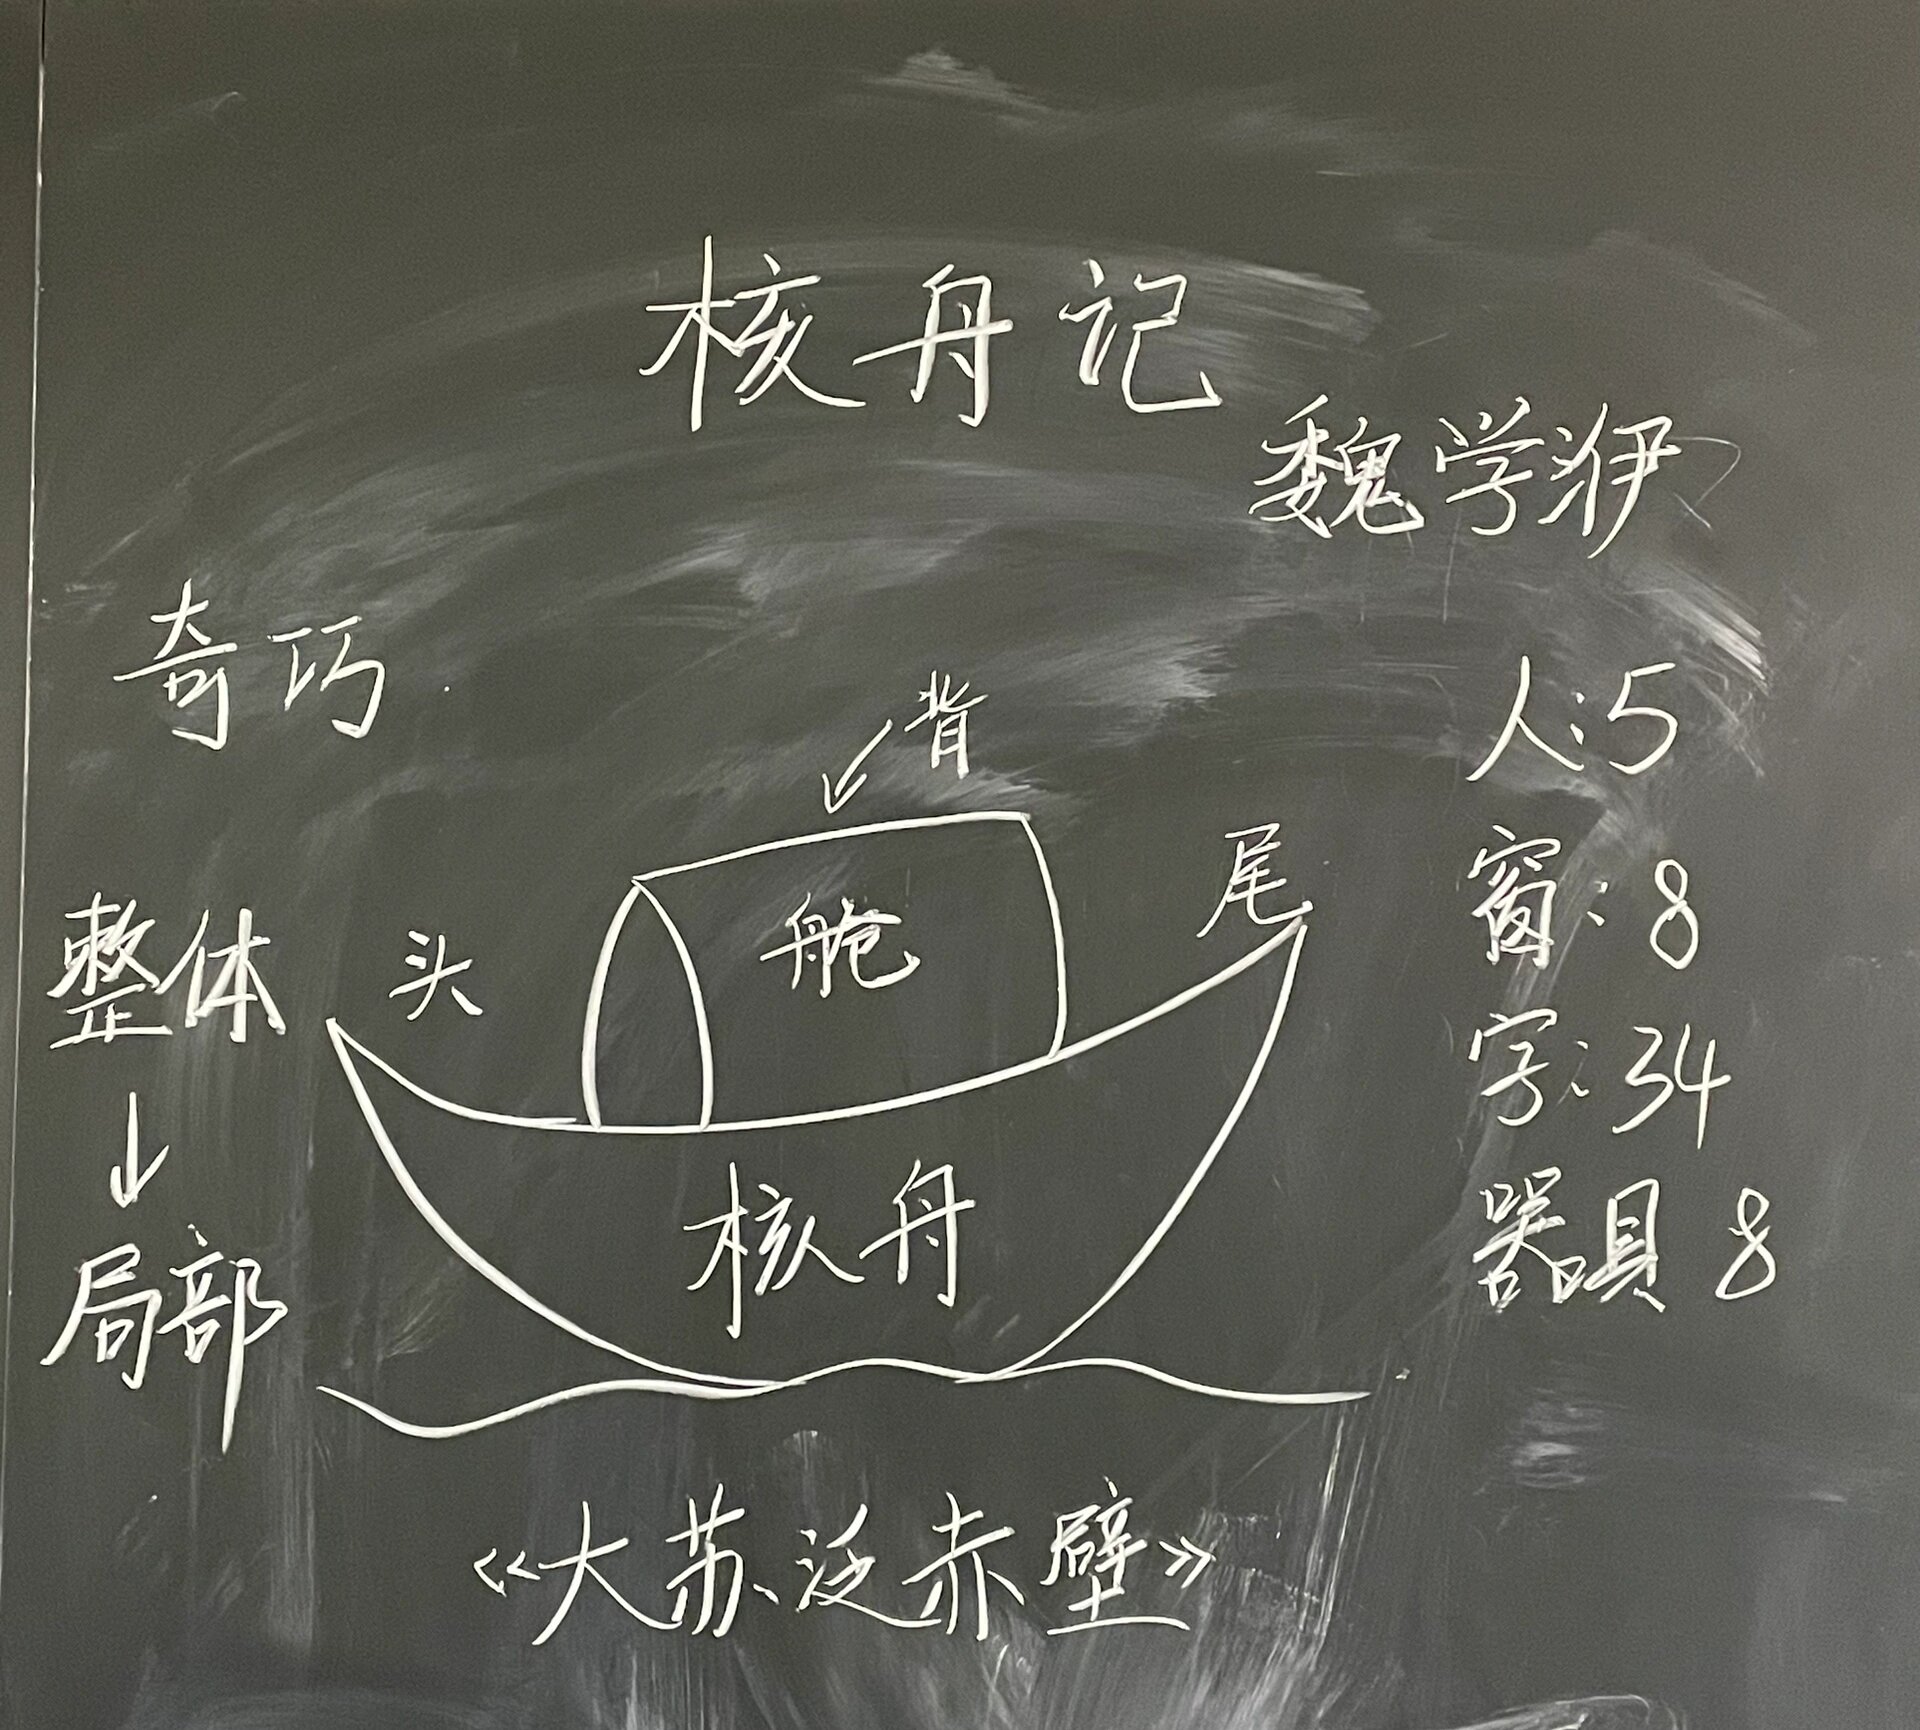 核舟记
魏学洢
奇巧
背
人:5
整体
头
舱
尾
窗:8
字:34
↓
局部
核舟
器具 8
《大苏泛赤壁》